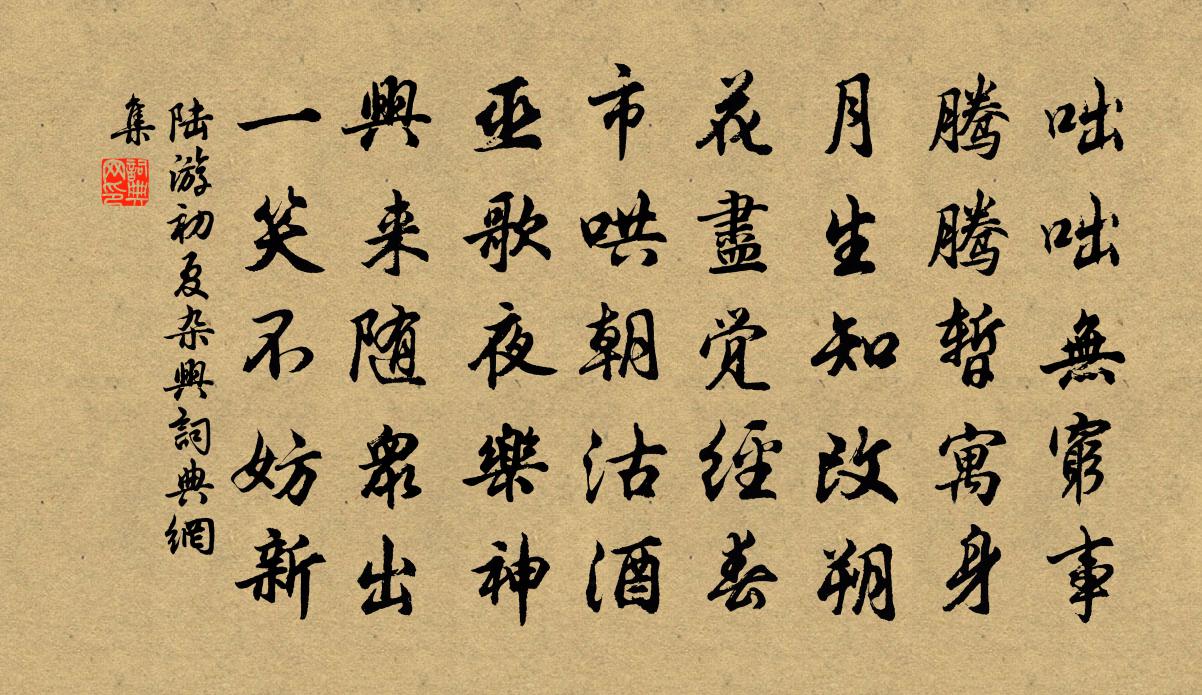 咄咄無窮事
騰騰暫寓身
月生知改朔
花盡覺經春
市哄朝沽酒
巫歌夜樂神
興来随衆出
一笑不妨新
陆游初夏杂興詞典網
集
詞典网印